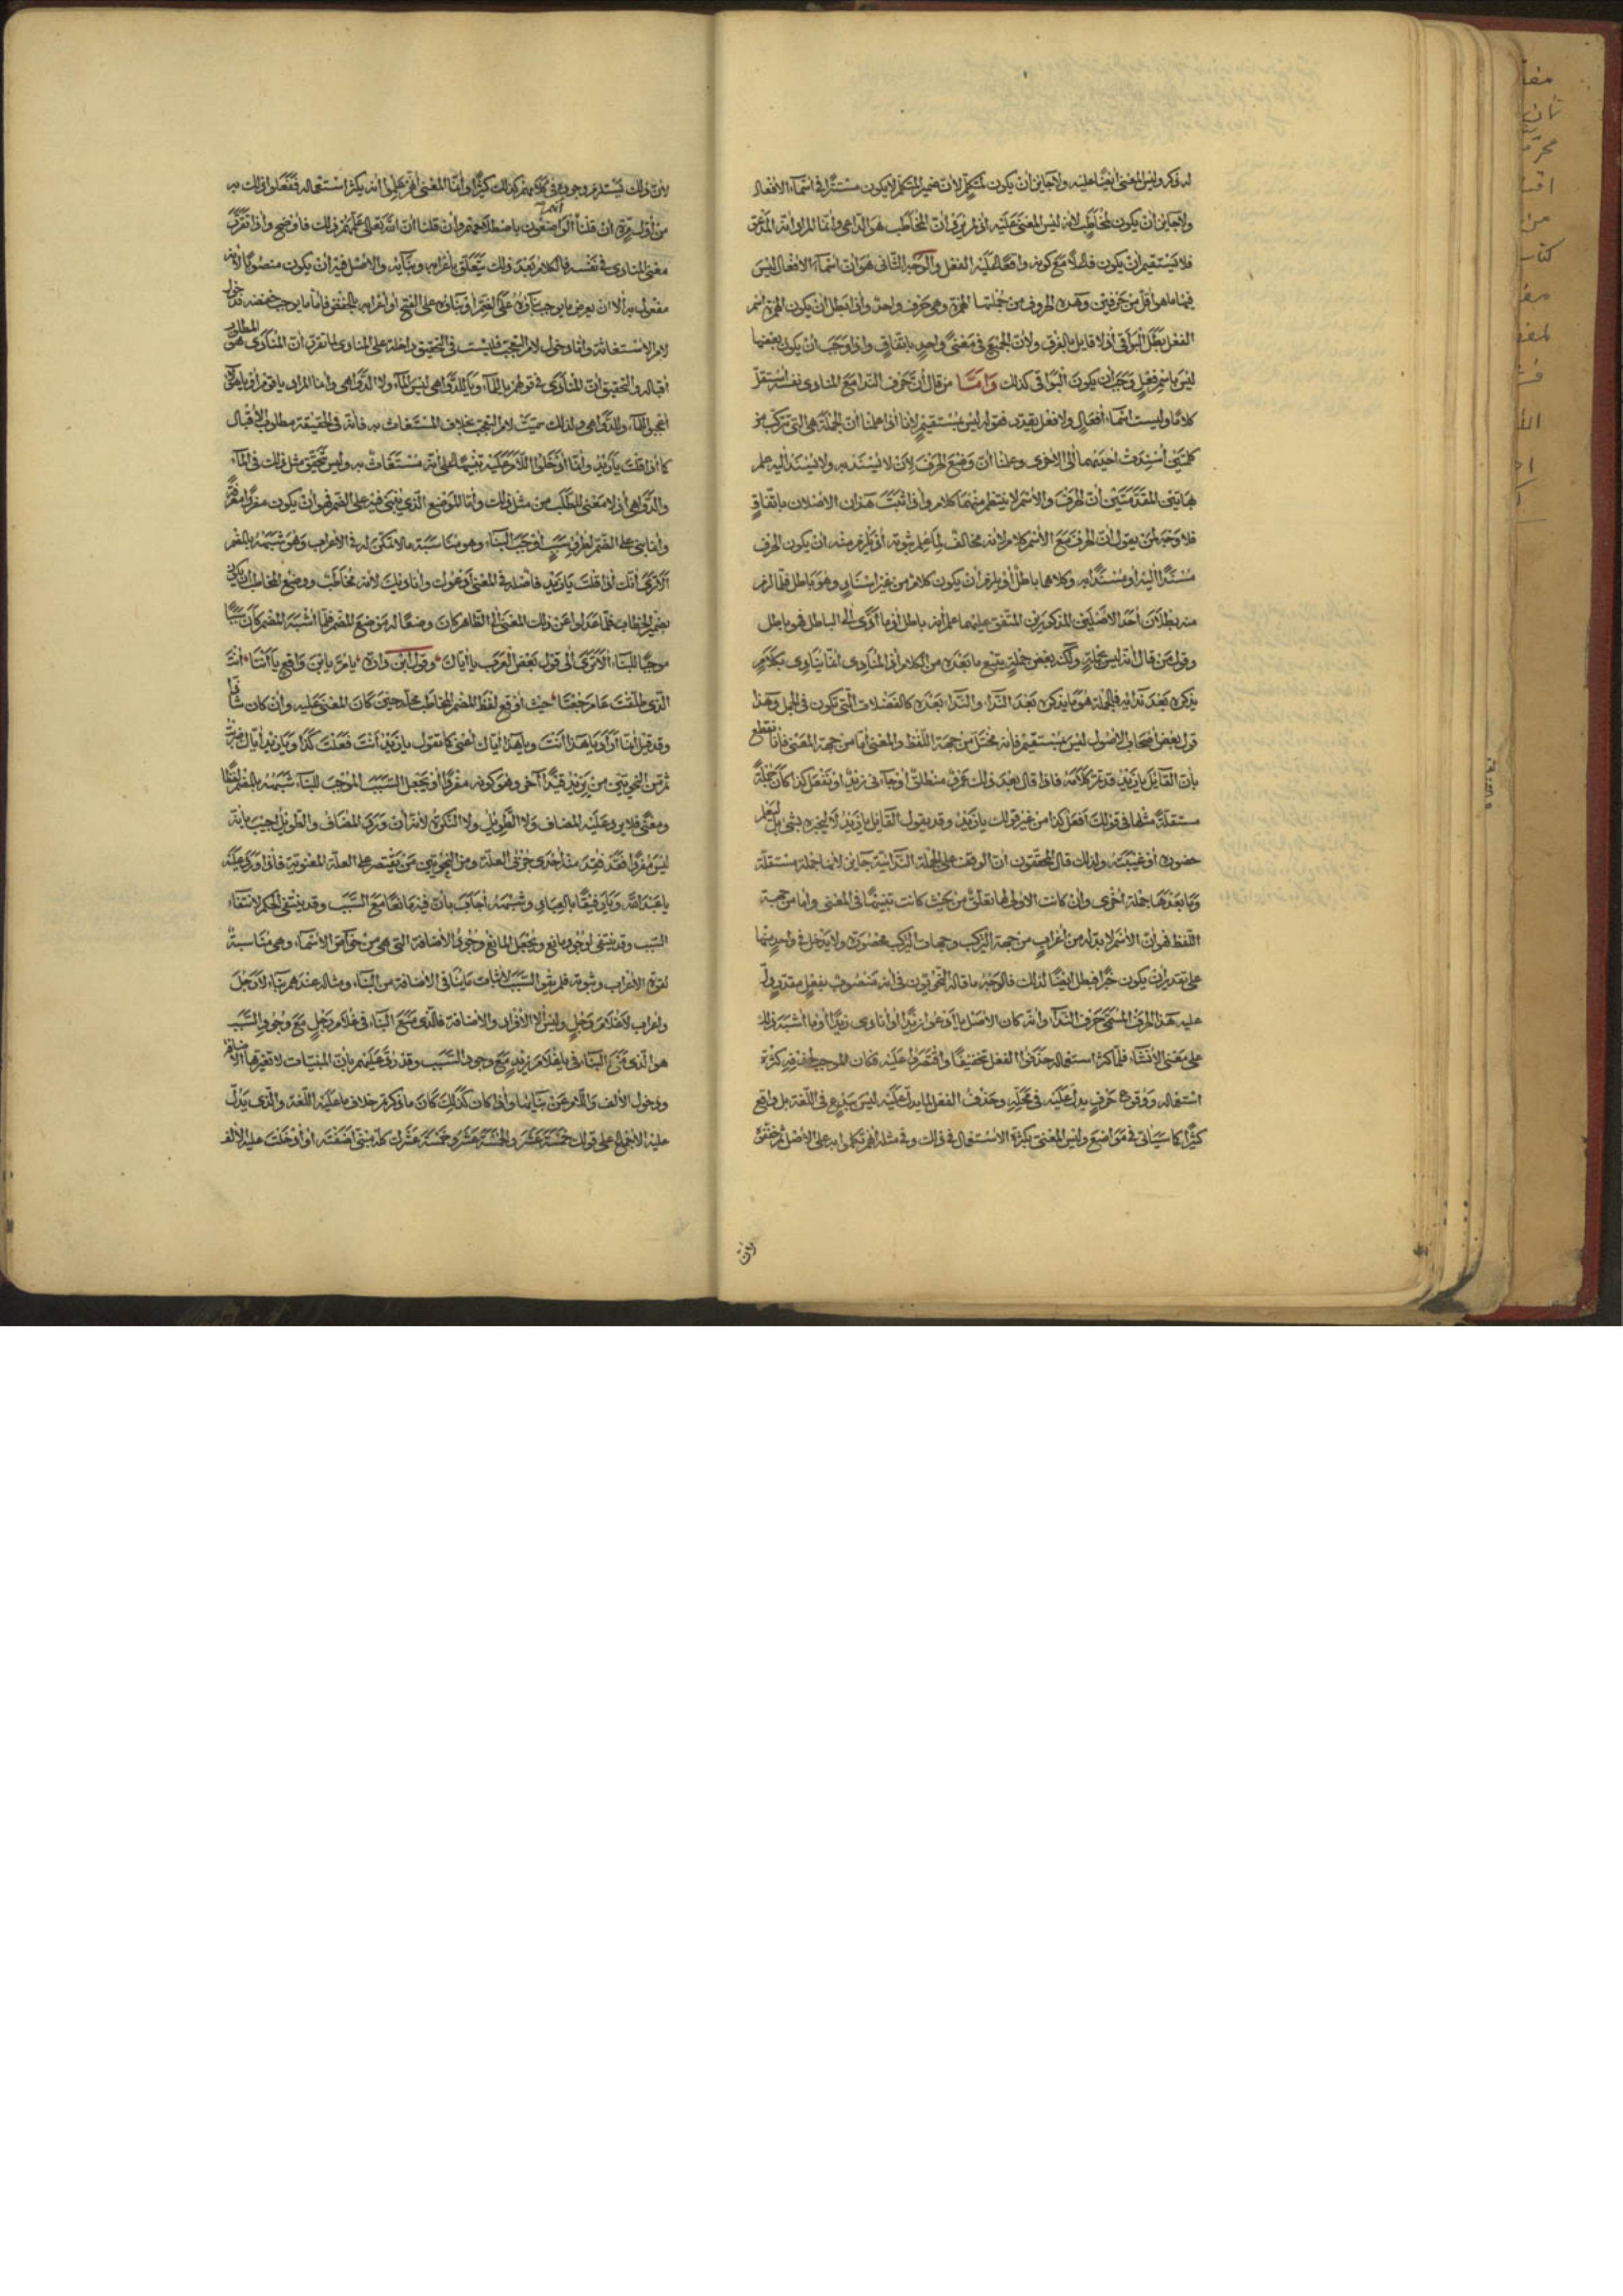 له ذكر وليس المعنى ايضا عليه ولا جايز ان يكون لمتكلم لان ضمير المتكلم لا يكون مستترا في اسماء الافعال
ولا جايز ان يكون لمخاطب لانه ليس المعنى عليه اذ لم يرد ان المخاطب هو الداعي وانما المراد انه المدعو
فلا يستقيم ان يكون فاعلا مع كونه واقعا عليه الفعل والوجه الثاني هو ان اسماء الافعال ليس
فيها ما هو اقل من حرفين وهذه الحروف من جملتها الهمزة وهي حرف واحد واذا بطل ان يكون الهمزة اسم
الفعل بطل البواقي اذ لا قايل بالفرق ولان الجميع في معنى واحد باتفاق واذا وجب ان يكون بعضها
ليس باسم فعل وجب ان يكون البواقي كذلك وامّا من قال ان حرف الندا مع المنادى نفسه مستقل
كلاما وليست اسماء افعال ولا فعل يقدر فقوله ليس بمستقيم لانا اذا علمنا ان الجملة هي التي تتركب من
كلمتين اسندت احديهما الى الاخرى وعلمنا ان وضع الحرف لان لا يسند به ولا يسند اليه علم
بهاتين المقدمتين ان الحرف والاسم لا ينتظم منهما كلام واذا ثبت هذان الاصلان باتفاق
فلا وجه لمن يقول ان الحرف مع الاسم كلام لانه مخالف لما علم ثبوته اذ يلزم منه ان يكون الحرف
مسندا اليه او مسندا به وكلاهما باطل او يلزم ان يكون كلام من غير اسناد وهو باطل فلما لزم
منه بطلان احد الاصلين المذكورين المتفق عليهما علم انه باطل اذ ما ادى الى الباطل فهو باطل
وقول من قال انه ليس بجملة ولكنه بعض جملة يتبع ما بعده من الكلام اذ المنادي انما ينادي بكلام
يذكره بعد ندائه فالجملة هو ما يذكره بعد النداء والندا بعده كالفضلات التي تكون في الجمل وهذا
قول بعض اصحاب الاصول ليس بمستقيم فانه مختل من جهة اللفظ والمعنى اما من جهة المعنى فانا نقطع
بان القايل يا زيد قد تم كلامه فاذا قال بعد ذلك عمرو منطلق او جاءني زيد او تفعل كذا كان جملة
مستقلة مثلها في قولك افعل كذا من غير قولك يا زيد وقد يقول القايل يا زيد لا ليخبره بشئ بل ليعلم
حضوره او غيبته ولذلك قال المحققون ان الوقف على الجملة الندائية جايز لانها جملة مستقلة
وما بعدها جملة اخرى وان كانت الاولى لها تعلق من حيث كانت تنبيها في المعنى واما من جهة
اللفظ فهو ان الاسم لا بد له من اعراب من جهة التركيب وجهات التركيب محصورة ولا يدخل في واحد منها
على تقدير ان يكون خبرا فبطل ايضا لذلك فالوجه ما قاله النحويون في انه منصوب بفعل مقدر دل
عليه هذا الحرف المسمى حرف النداء وانه كان الاصل يا ادعو زيدا او انادي زيدا او ما اشبه ذلك
على معنى الانشاء فلما كثر استعماله حذفوا الفعل تخفيفا واقتصروا عليه فكان الموجب لحذفه كثرة
استعماله ووقوع حرف يدل عليه في محله وحذف الفعل لما يدل عليه ليس ببدع في اللغة بل واقع
كثيرا كما سياتي في مواضع وليس المعنى بكثرة الاستعمال في ذلك وفي مثله انهم تكلموا به على الاصل ثم خفف
لان
لان ذلك يستدعي وجوده في كلامهم كذلك كثيرا وانما المعنى انهم علموا انه يكثر استعماله ففعلوا ذلك به
من اول مرة ان قلنا ان الواضعون باصطلاحهم وان قلنا ان الله تعالى علمهم ذلك فاوضح واذا تقرر
معنى المنادى في نفسه فالكلام بعد ذلك يتعلق باعرابه وبنائه والاصل فيه ان يكون منصوبا لانه
مفعول به الا ان يعرض ما يوجب بناؤه على الضم او بناؤه على الفتح او اعرابه بالخفض فاما ما يوجب خفضه فدخول
لام الاستغاثة واما دخول لام التعجب فليست في التحقيق داخلة على المنادى لما تقرر ان المنادى هو المطلوب
اقباله والتحقيق ان المنادى في قولهم يا للماء ويا للدواهي ليس الماء ولا الدواهي وانما المراد يا قوم او يا هؤلاء
اعجبوا للماء وللدواهي ولذلك سميت لام التعجب بخلاف المستغاث به فانه في الحقيقة مطلوب الاقبال
كما اذا قلت يا زيد وانما ادخلوا اللام عليه تنبيها على انه مستغاث به وليس تحقق مثل ذلك في الماء
والدواهي اذ لا معنى للطلب من مثل ذلك واما الموضع الذي يبنى فيه على الضم فهو ان يكون مفردا معرفة
وانما بني على الضم لعروض سبب اوجب البناء وهو مناسبة ما لا تمكن له في الاعراب وهو شبهه بالضمير
الا ترى انك اذا قلت يا زيد فاصله في المعنى ادعوك واناديك لانه مخاطب ووضع المخاطب ان ياتي
بضمير الخطاب فلما عدلوا عن ذلك المعنى الى الظاهر كان وضعا له موضع المضمر فلما اشبه المضمر كان سببا
موجبا للبناء الا ترى الى قول بعض العرب يا اياك وقول ابن دارة يا مر يا بن واقع يا انتا انت
الذي طلقت عام جعتا حيث اوقع لفظ المضمر المخاطب محله حين كان المعنى عليه وان كان شاذا
وقد قيل ايضا اراد يا هذا انت ويا هذا اياك اعني كما تقول يا زيد انت فعلت كذا ويا زيد اياك ضربت
ثم من النحويين من يزيد قيدا آخر وهو كونه مفردا او يجعل السبب الموجب للبناء شبهه بالمضمر لفظا
ومعنى فلا يرد عليه المضاف ولا الطويل ولا النكرة لانه ان ورد المضاف والطويل اجيب بانه
ليس مفردا فقد فقد منه احدى جزئي العلة ومن النحويين من يقتصر على العلة المعنوية فاذا ورد عليه
يا عبد الله ويا رفيقا بالعباد وشبهه اجاب بان فيه مانعا مع السبب وقد ينتفي الحكم لانتفاء
السبب وقد ينتفي لوجود مانع ويجعل المانع وجود الاضافة التي هي من خواص الاسماء وهي مناسبة
لقوة الاعراب وثبوته فلم يقو السبب لاثبات ما ينافي الاضافة من البناء ومثاله عندهم بناء لا رجل
واعراب لا غلام رجل وليس الا الافراد والاضافة فالذي منع البناء في غلام رجل مع وجود السبب
هو الذي منع البناء في يا غلام زيد مع وجود السبب وقد رد عليهم بان المبنيات لا تغيرها الاضافة
ودخول الالف واللام عن بنائها واذا كان كذلك كان ما ذكرتم خلاف ما عليه اللغة والذي يدل
عليه الاجماع على قولك خمسة عشر والخمسة عشر وخمسة عشرك كله مبني اضفته او ادخلت عليه الالف